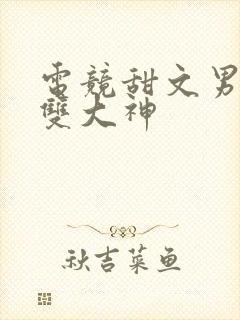 電競甜文男
雙大神
秋吉菜鱼